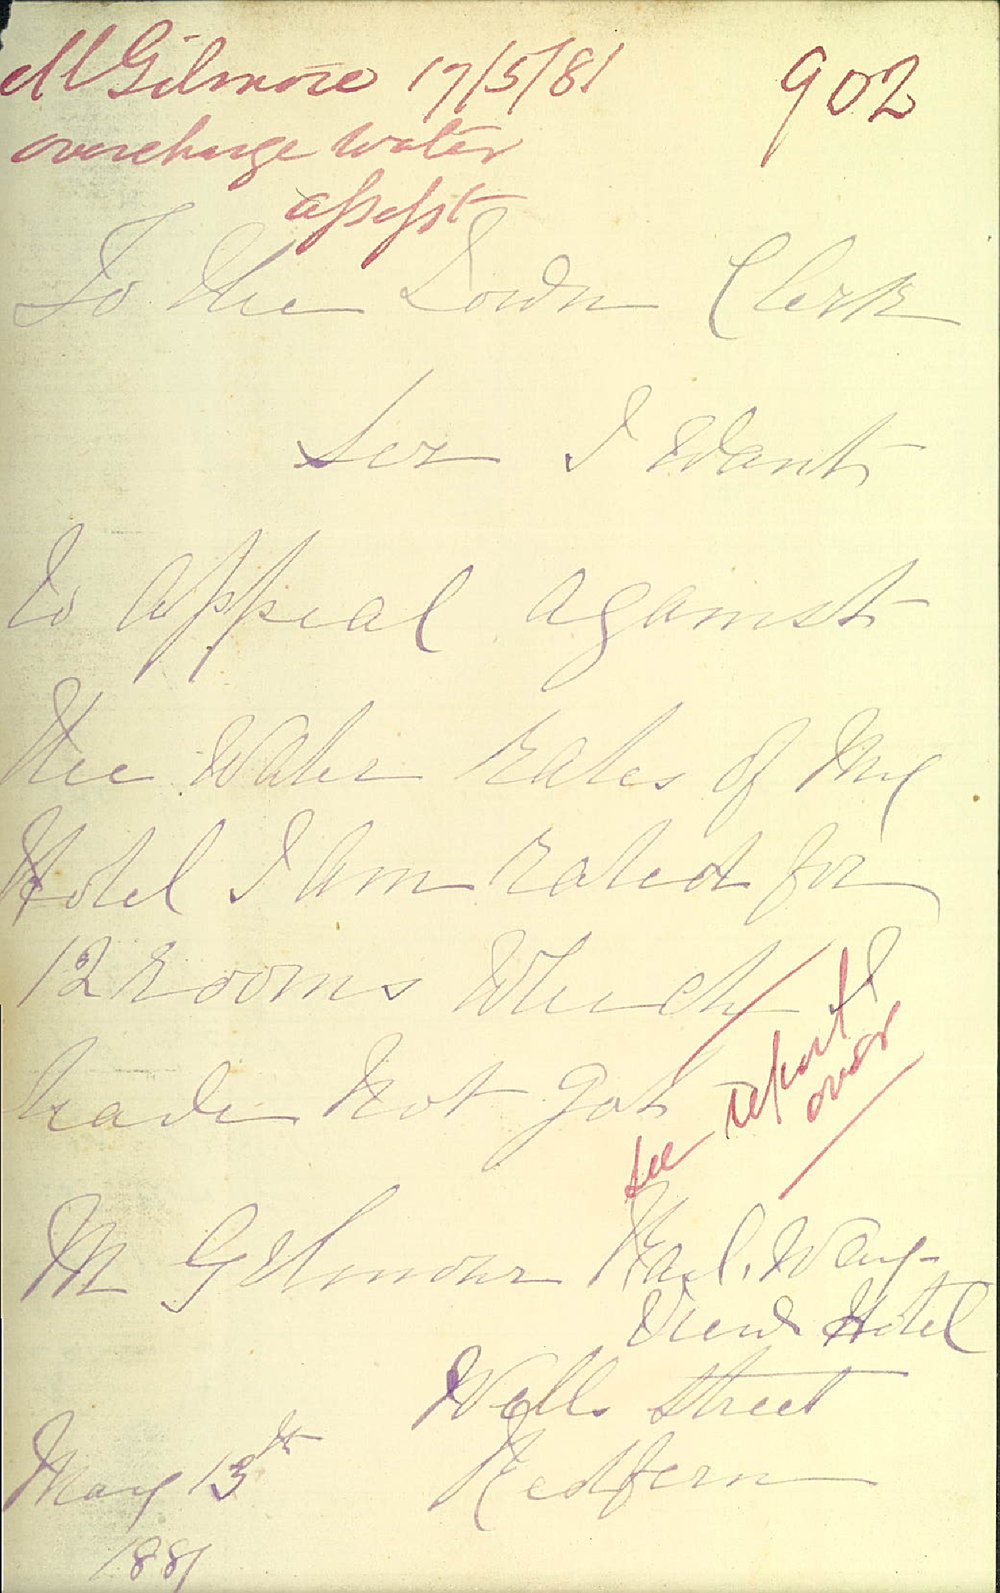 M Gilmore 17/5/81
902
overcharge water
assesst
To the Town Clerk
Sir I Want
to appeal against
the Water rates of My
Hotel I Am rated for
12 rooms Which I
have Not got
see report
over
M Gilmour Rail. Way
View Hotel
Wells Street
Redfern
May 13th
1881